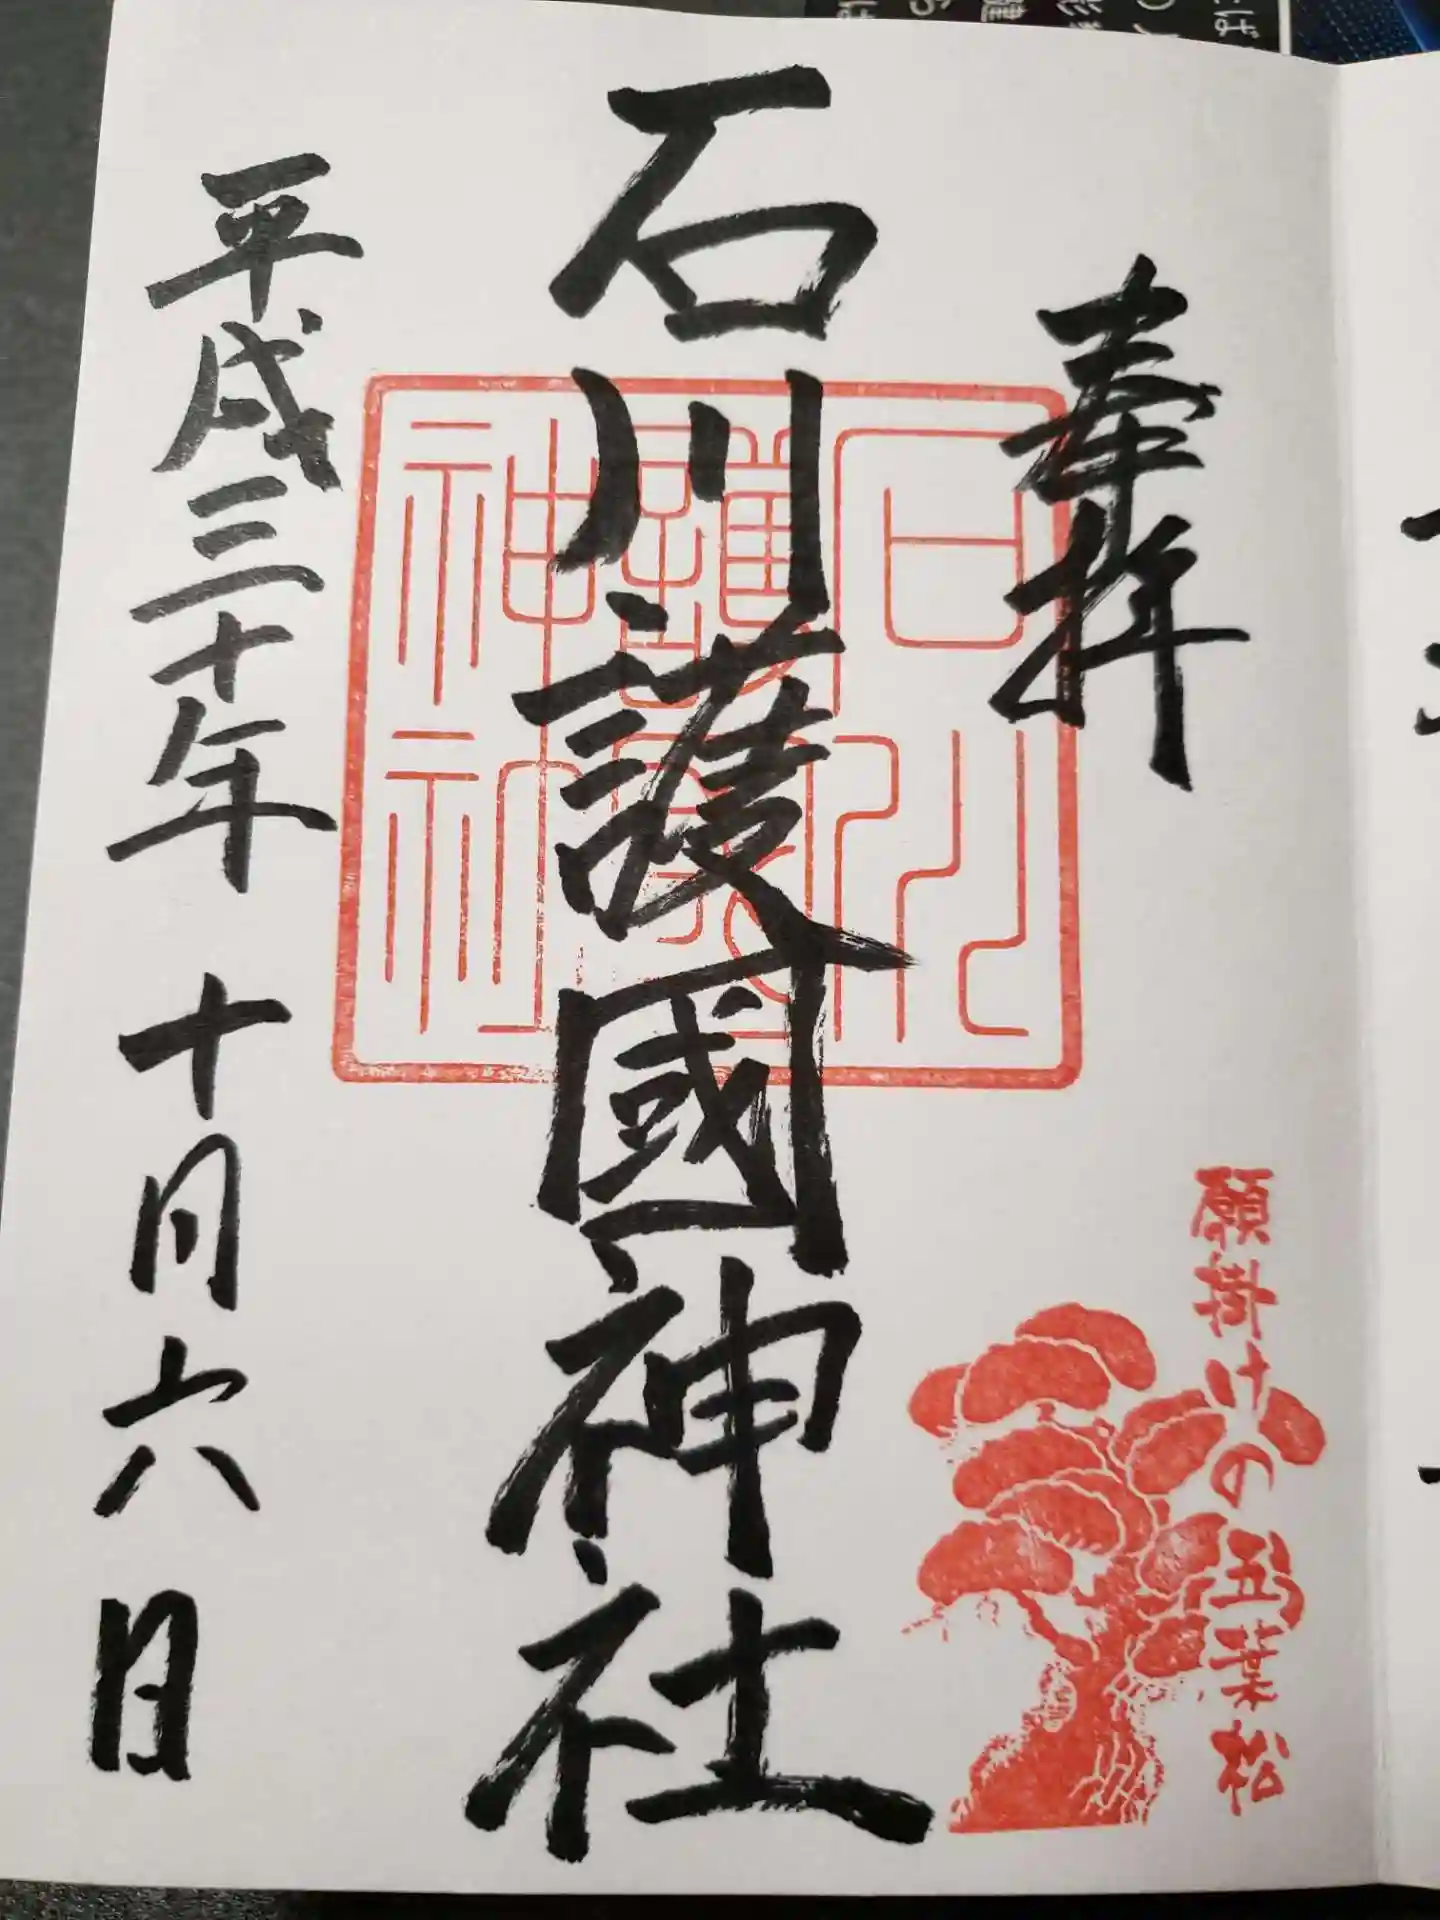 奉拝
願掛けの五葉松
石川護國神社
石川護國神社
平成三十年 十月六日